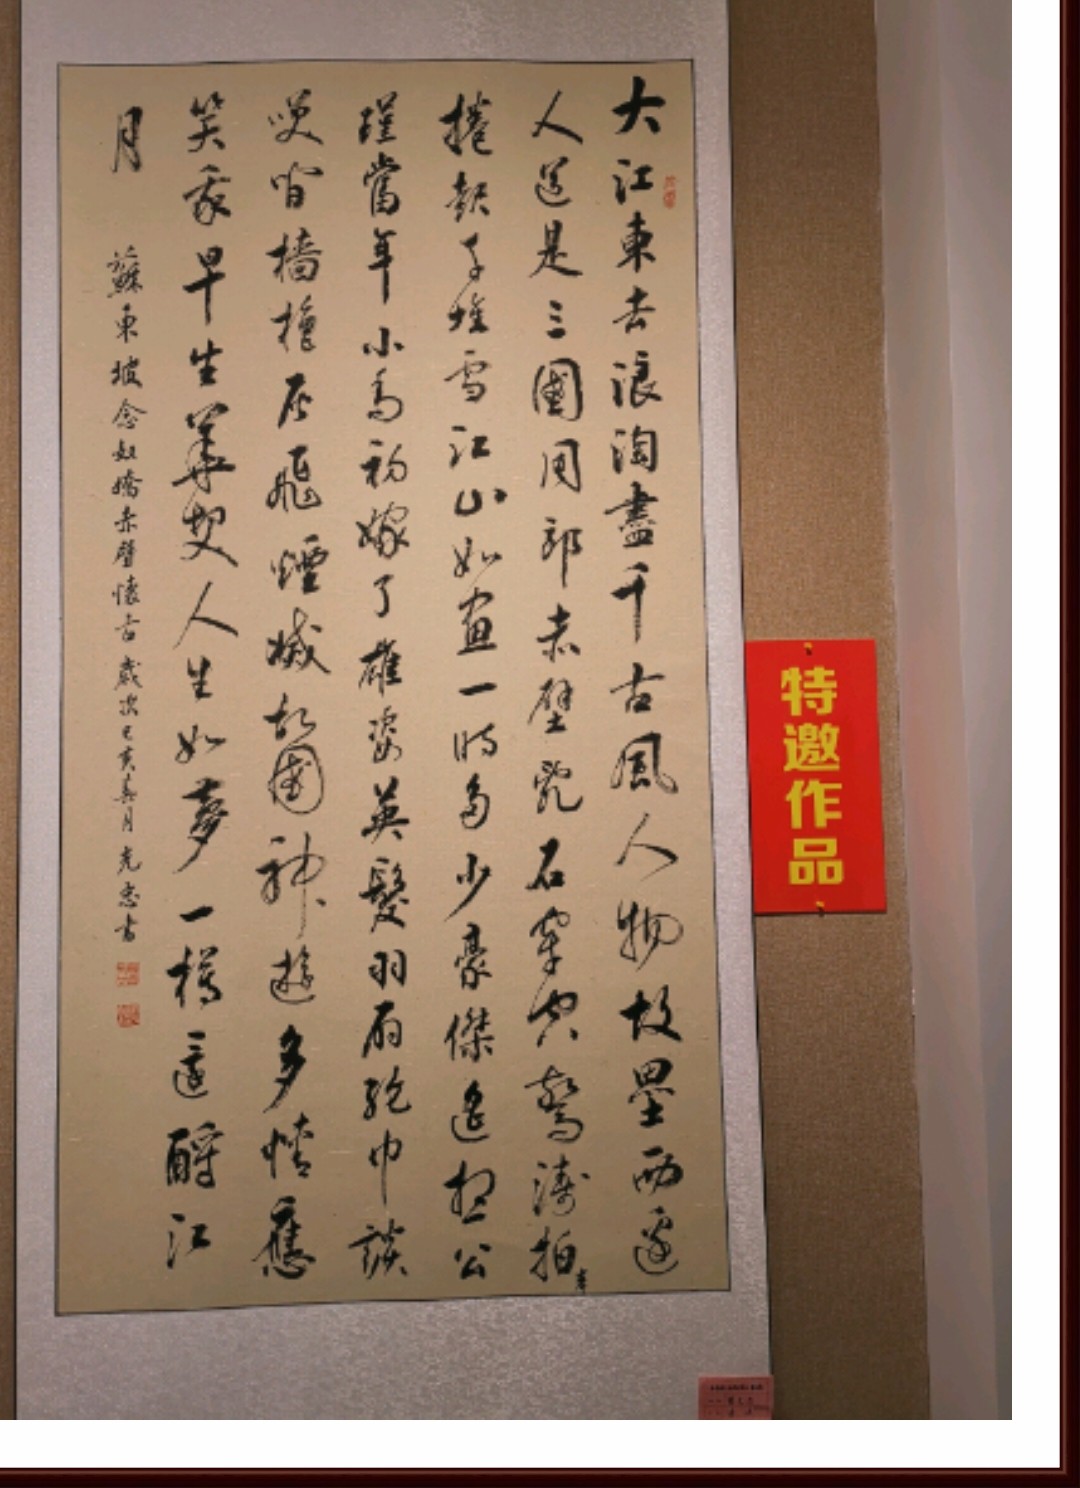 大江東去浪淘盡千古風人物故壘西邊
人道是三國周郎赤壁亂石穿空驚濤拍岸
捲起千堆雪江山如畫一時多少豪傑遙想公
瑾當年小喬初嫁了雄姿英髮羽扇綸巾談
咲間檣櫓灰飛煙滅故國神遊多情應
笑我早生華髮人生如夢一樽還酹江
月
蘇東坡念奴嬌赤壁懷古歲次己亥月忠書
特邀作品